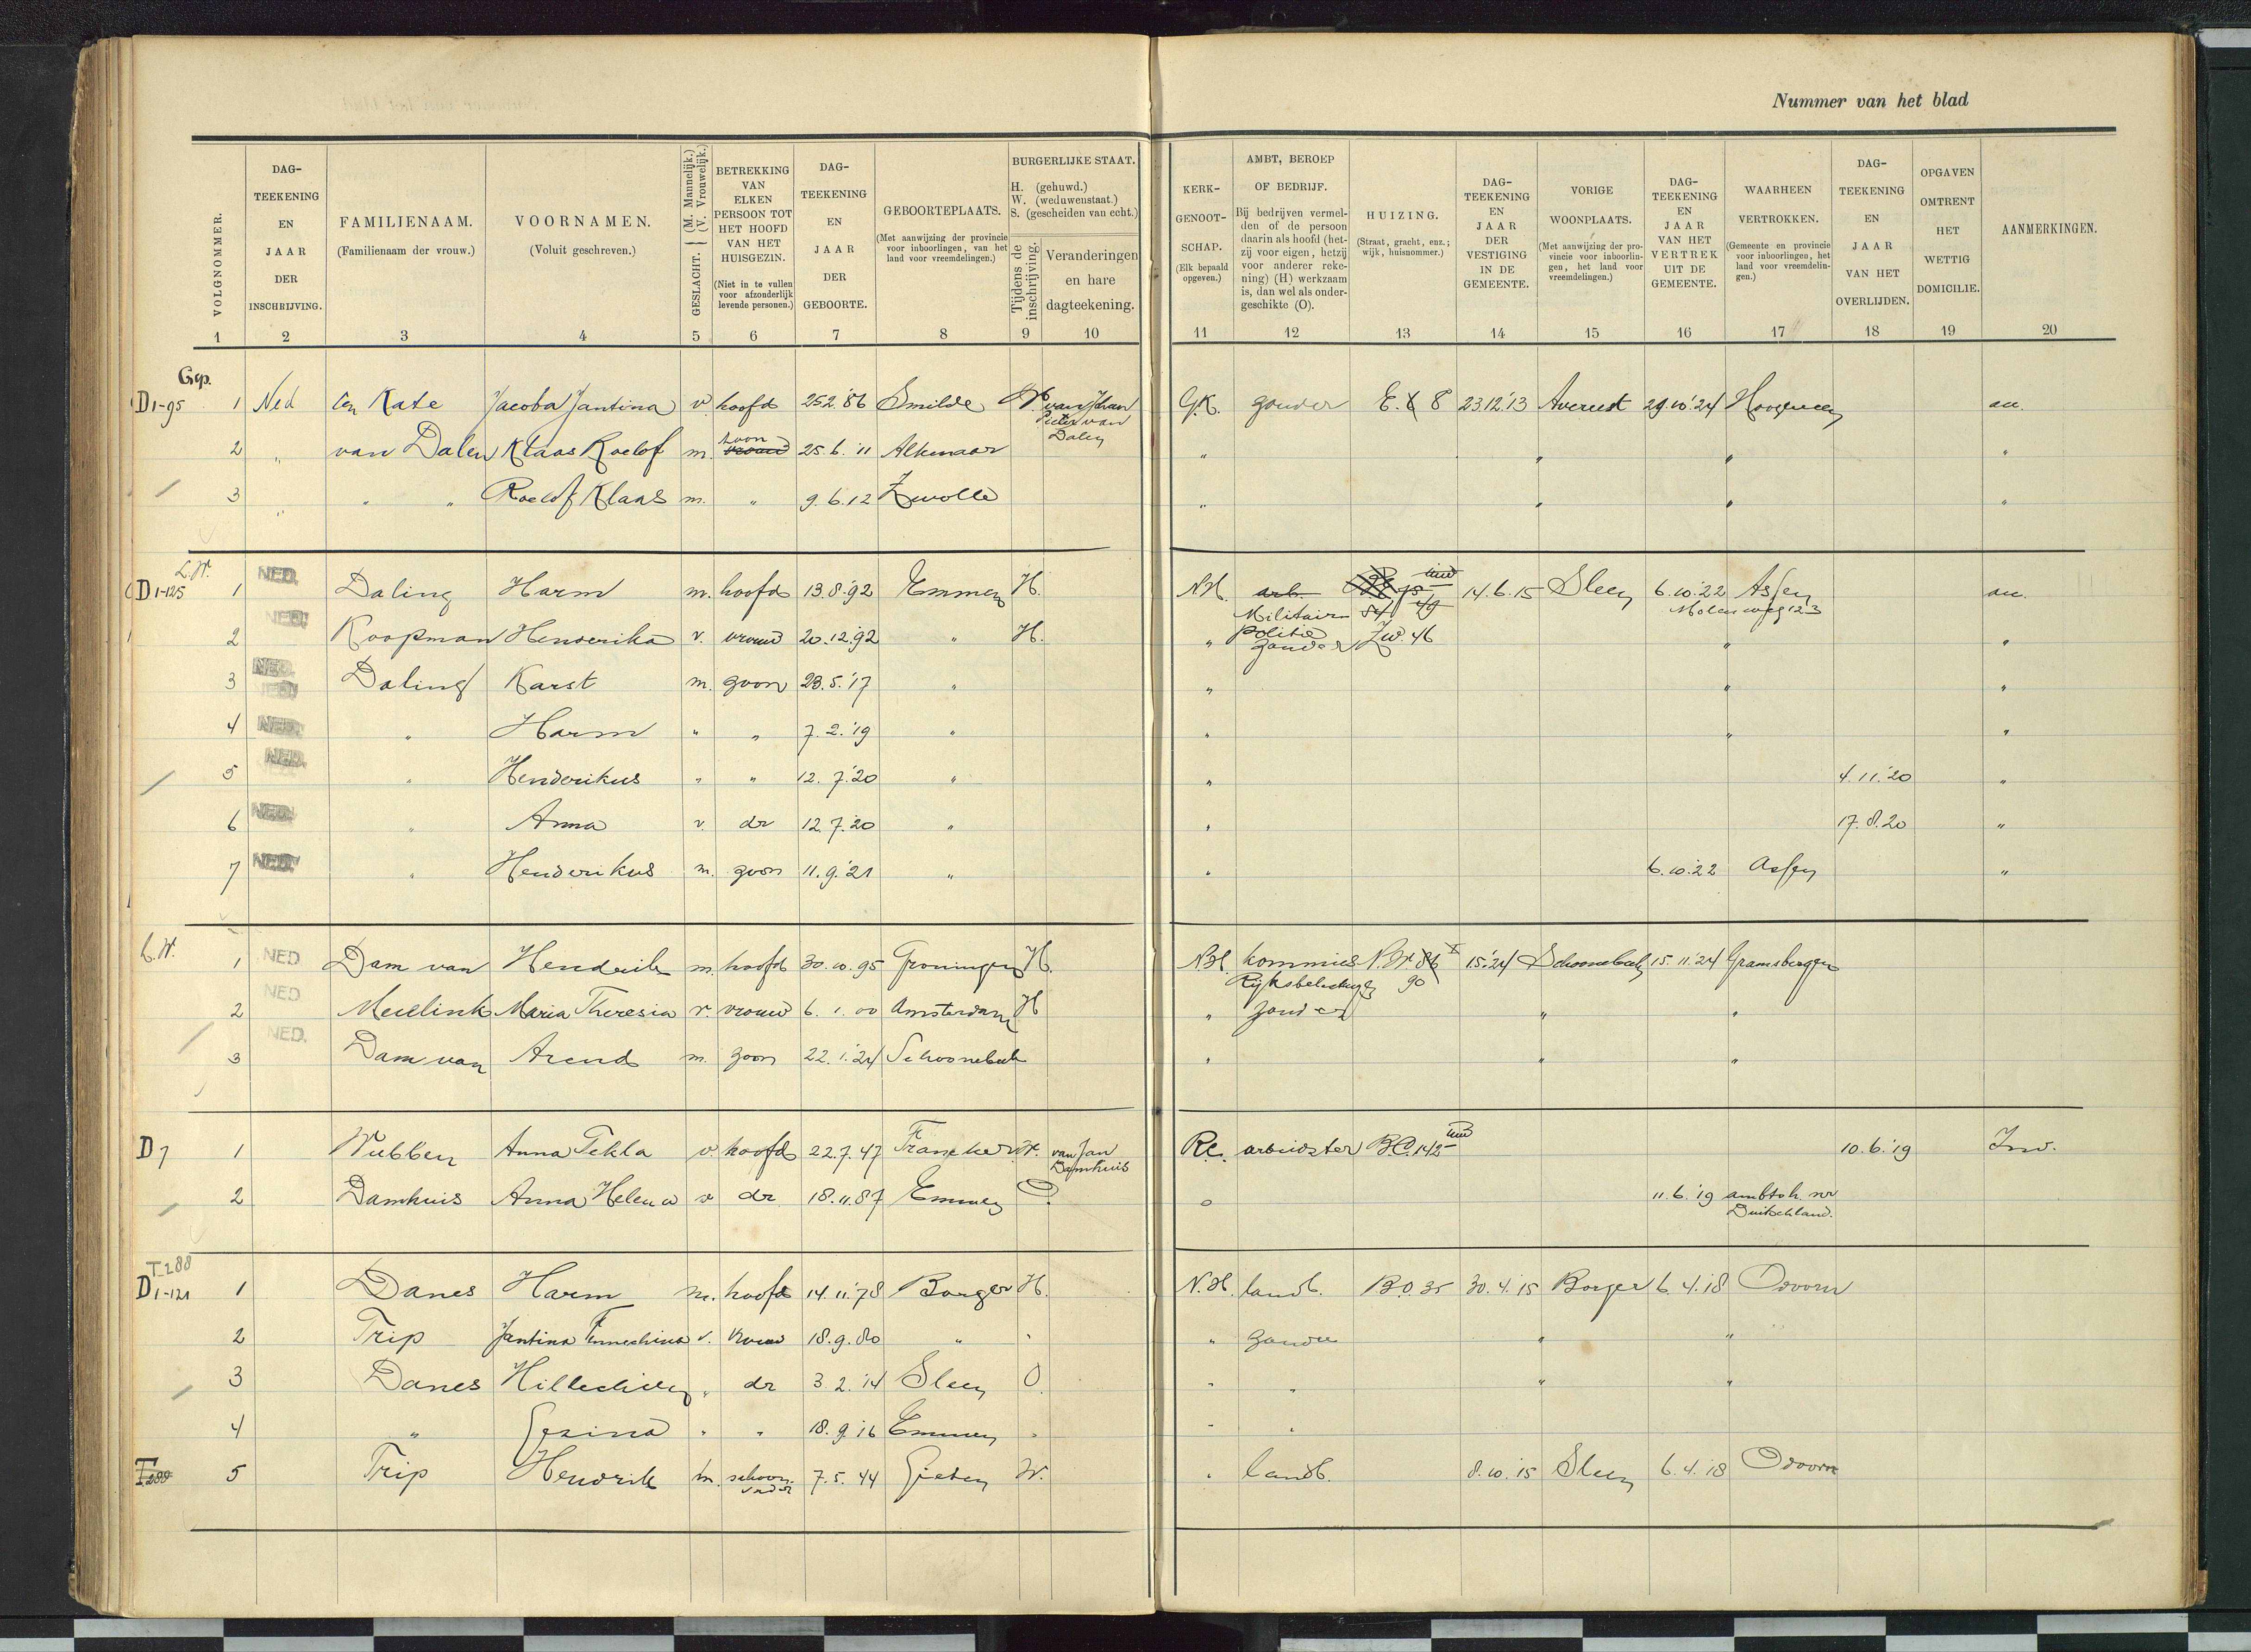 Nummer van het blad
VOLGNOMMER.
DAG-TEEKENING EN JAAR DER INSCHRIJVING.
FAMILIENAAM. (Familienaam der vrouw.)
VOORNAMEN. (Voluit geschreven.)
GESLACHT. (M. Mannelijk.) (V. Vrouwelijk.)
BETREKKING VAN ELKEN PERSOON TOT HET HOOFD VAN HET HUISGEZIN. (Niet in te vullen voor afzonderlijk levende personen.)
DAG-TEEKENING EN JAAR DER GEBOORTE.
GEBOORTEPLAATS. (Met aanwijzing der provincie voor inboorlingen, van het land voor vreemdelingen.)
BURGERLIJKE STAAT. H. (gehuwd.) W. (weduwenstaat.) S. (gescheiden van echt.)
Tijdens de inschrijving.
Veranderingen en hare dagteekening.
KERK-GENOOT-SCHAP. (Elk bepaald opgeven.)
AMBT, BEROEP OF BEDRIJF. Bij bedrijven vermelden of de persoon daarin als hoofd (hetzij voor eigen, hetzij voor anderer rekening) (H) werkzaam is, dan wel als ondergeschikte (O).
HUIZING. (Straat, gracht, enz.; wijk, huisnommer.)
DAG-TEEKENING EN JAAR DER VESTIGING IN DE GEMEENTE.
VORIGE WOONPLAATS. (Met aanwijzing der provincie voor inboorlingen, het land voor vreemdelingen.)
DAG-TEEKENING EN JAAR VAN HET VERTREK UIT DE GEMEENTE.
WAARHEEN VERTROKKEN. (Gemeente en provincie voor inboorlingen, het land voor vreemdelingen.)
DAG-TEEKENING EN JAAR VAN HET OVERLIJDEN.
OPGAVEN OMTRENT HET WETTIG DOMICILIE.
AANMERKINGEN.
1 2 3 4 5 6 7 8 9 10 11 12 13 14 15 16 17 18 19 20
Gep.
D1-95 1 Ned ten Kate Jacoba Jantina v. hoofd 25.2.'86 Smilde W. van Johan Pieter van Dalen G.K. zonder E. 8 23.12.'13 Avereest 29.10.'24 Hoogeveen an.
2 " van Dalen Klaas Roelof m. zoon 25.6.'11 Alkmaar " " " "
3 " " " Roelof Klaas m. " 9.6.12 Zwolle " " " "
L.W.
D1-125 1 NED. Daling Harm m. hoofd 13.8.'92 Emmen H. N.H. arb. Militair politie 54 49 14.6.15 Sleen 6.10.'22 Assen Molenweg 123 an.
2 NED. Koopman Henderika v. vrouw 20.12.'92 " H. " zonder Zw. 46 " "
3 NED. Daling Karst m. zoon 28.5.'17 " " " "
4 NED. " Harm " " 7.2.'19 " " " "
5 NED. " Henderikus " " 12.7.'20 " " 4.11.'20 "
6 NED. " Anna v. dr 12.7.'20 " " 17.8.20 "
7 NED. " Henderikus m. zoon 11.9.'21 " " 6.10.'22 Assen "
L.W.
1 NED Dam van Hendrik m. hoofd 30.10.95 Groningen H. N.H. kommies Rijksbelastingen N.W. 86 90 15.'24 Schoonebeek 15.11.'24 Gramsbergen
2 NED Meulink Maria Theresia v. vrouw 6.1.00 Amsterdam H " zonder " "
3 NED. Dam van Arend m. zoon 22.1.'24 Schoonebeek " " "
D7 1 Wubben Anna Tekla v. hoofd 22.7.47 W. van Jan Damhuis R.C. arbeidster B.C. 142 10.6.'19 Inv.
2 Damhuis Anna Helena v dr 18.11.87 Emmen O. 11.6.'19 ambtsh. nr Duitschland.
T 288
D1-121 1 Danes Harm m. hoofd 14.11.'78 Borger H. N.H. landb. B.O. 35 30.4.'15 Borger 6.4.'18 Odoorn
2 Trip Jantina v. vrouw 18.9.80 " " " zonder " "
3 Danes Hillechien " dr 3.2.'14 Sleen O. " " " "
4 " Gezina " " 18.9.16 Emmen " " "
T 288 5 Trip Hendrik m. schoonvader 7.5.44 Gieten W. " landb. 8.10.'15 Sleen 6.4.'18 Odoorn